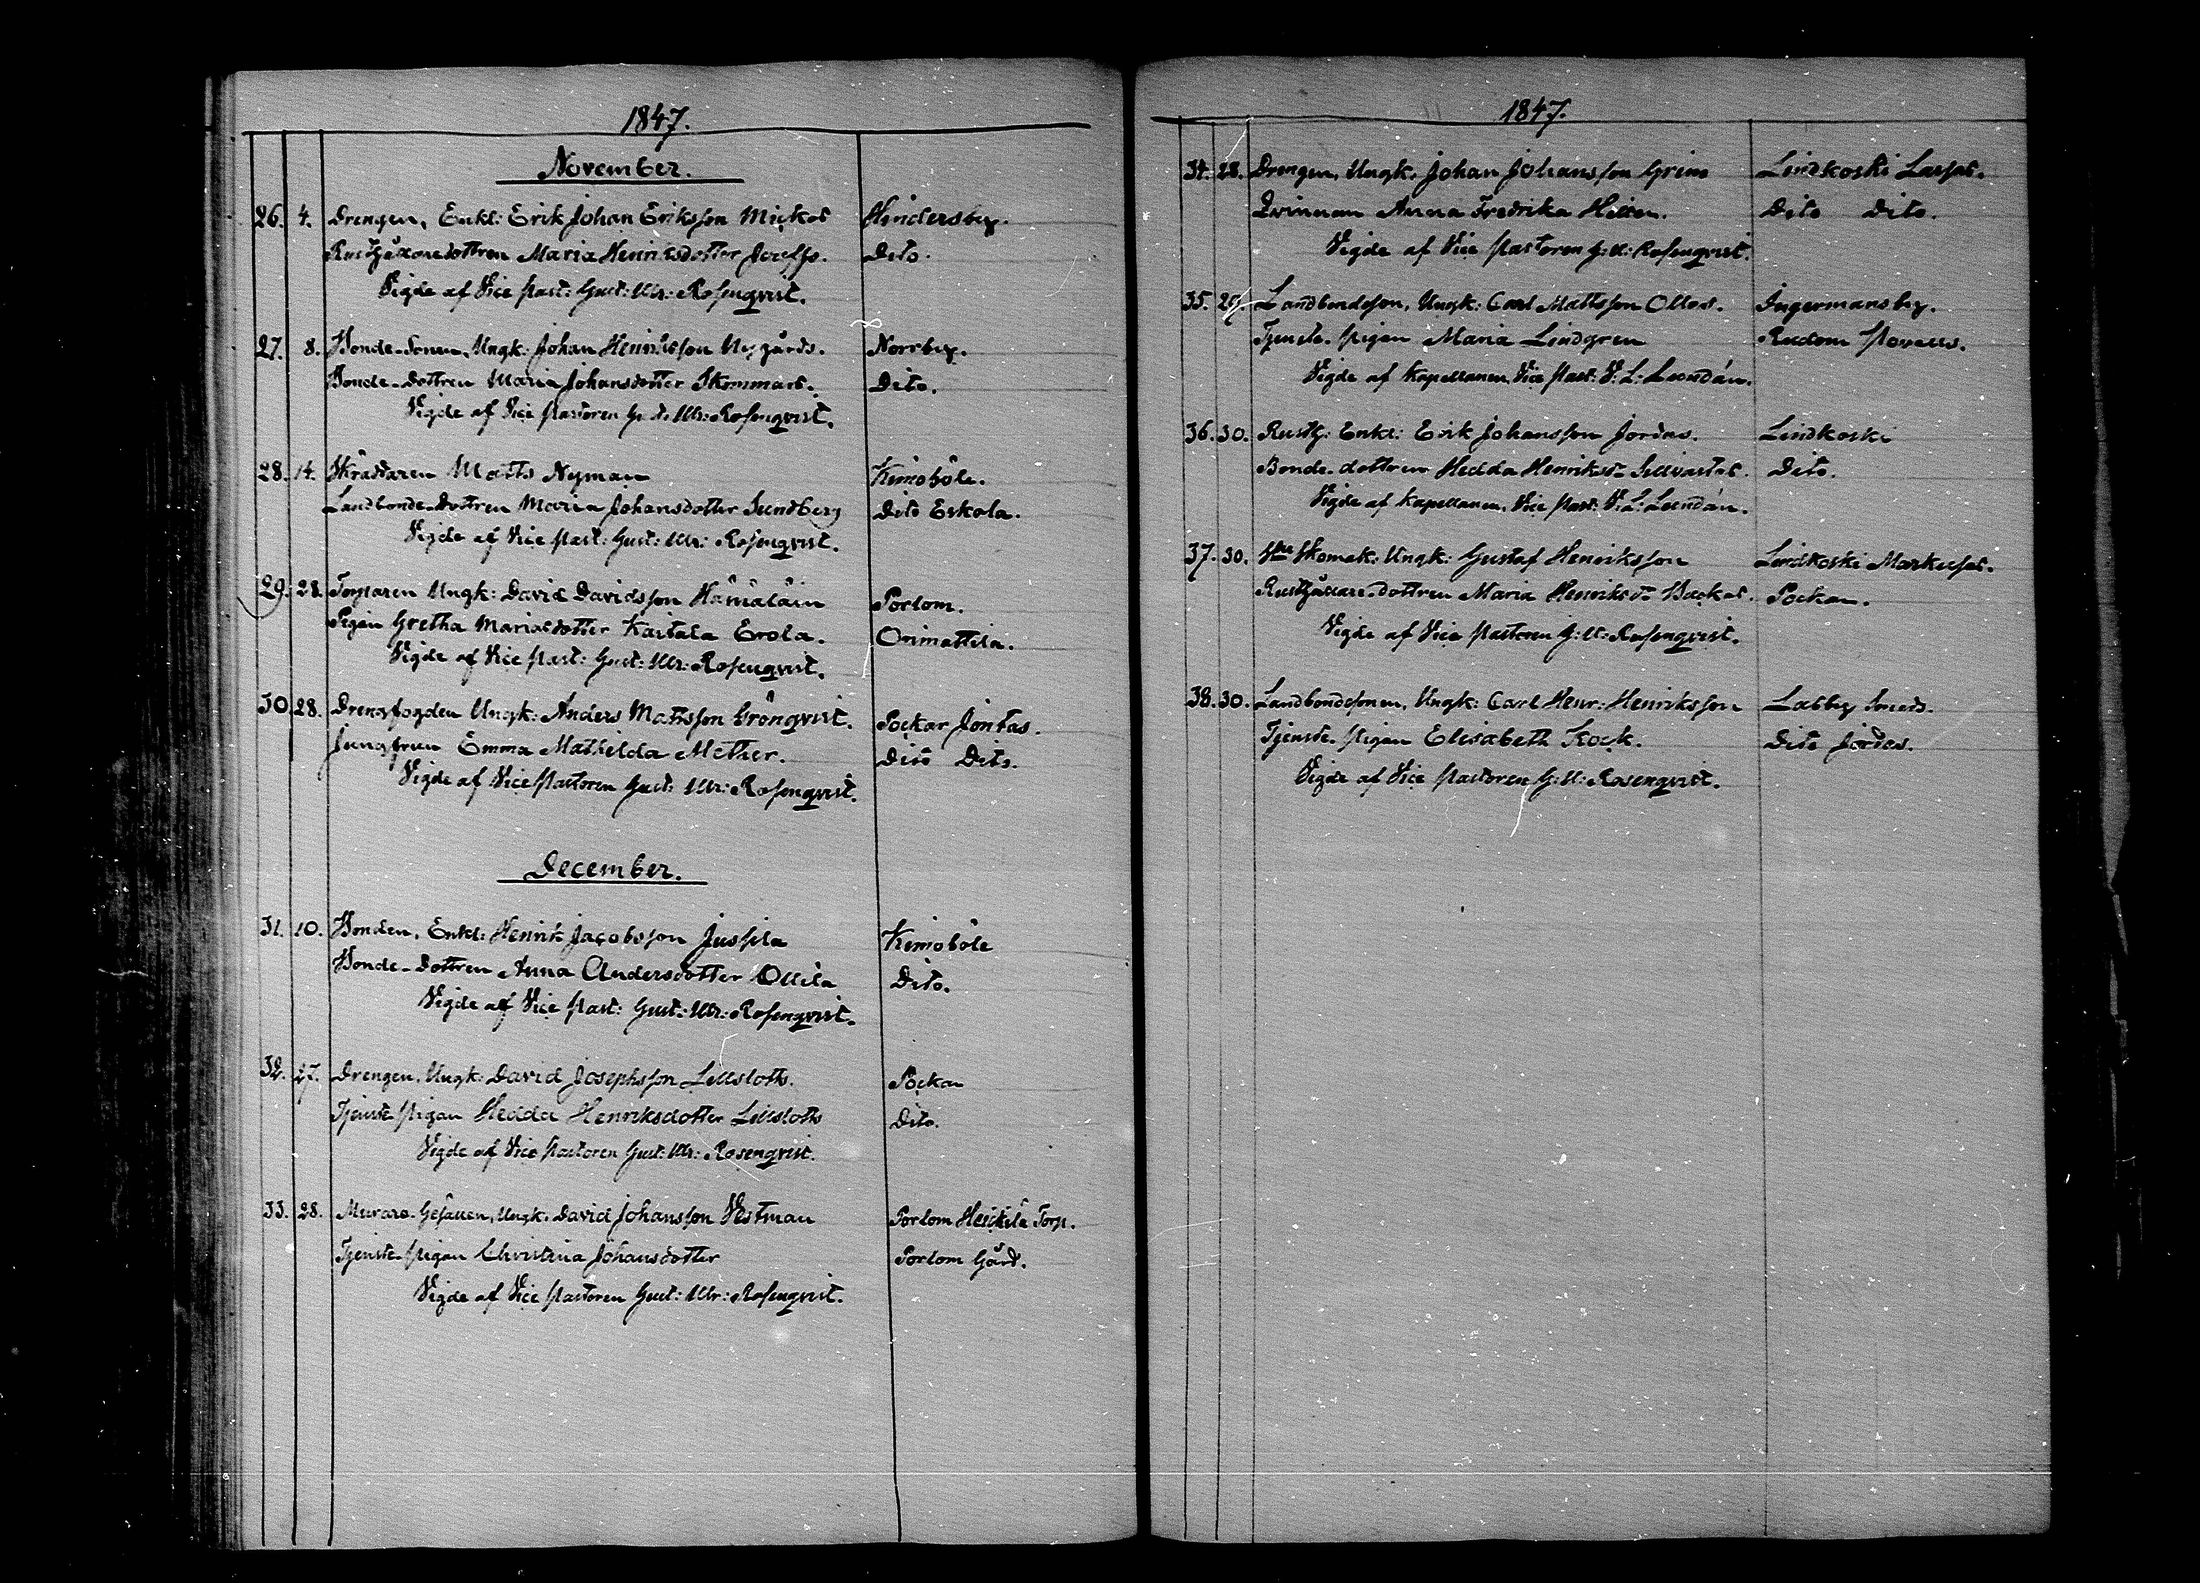 1847.
November.
26. 4. Drengen, Enkl: Erik Johan Eriksson Mickos Hindersby.
Rusthållaredottren Maria Henriksdotter Josefs. Dito.
Vigde af Vice Past: Gust: Ulr: Rosenqvist.
27. 8. Bonde-Sonen, Ungk: Johan Henriksson Nygårds. Norrby.
Bonde-Dottren Maria Johansdotter Skommars. Dito.
Vigde af Vice Pastoren Gust. Ulr: Rosenqvist.
28. 14. Skräddaren Matts Nyman Kimoböle.
Landbonde-Dottren Maria Johansdotter Sundberg Dito Eskola.
Vigde af Vice Past: Gust: Ulr: Rosenqvist.
29. 28. Torparen Ungk: David Davidsson Hämäläin Porlom.
Pigan Gretha Mariasdotter Kartala Erola. Orimattila.
Vigde af Vice Past: Gust: Ulr: Rosenqvist.
30. 28. Drengfogden Ungk: Anders Mattsson Grönqvist. Pockar Jontas.
Jungfrun Emma Mathilda Mether. Dito Dito.
Vigde af Vice Pastoren Gust: Ulr: Rosenqvist.
December.
31. 10. Bonden, Enkl: Henrik Jacobsson Jussila Kimoböle
Bonde-Dottren Anna Andersdotter Ollila Dito.
Vigde af Vice Past: Gust: Ulr: Rosenqvist.
32. 27. Drengen, Ungk: David Josephsson Lillsloths. Pockar
Tjenste Pigan Hedda Henriksdotter Lillsloths Dito.
Vigde af Vice Pastoren Gust: Ulr: Rosenqvist.
33. 28. Murare-Gesällen, Ungk. David Johansson Vestman Porlom Heickilä Torp.
Tjenste-Pigan Christina Johansdotter Porlom Gård.
Vigde af Vice Pastoren Gust: Ulr: Rosenqvist.
1847.
34. 28. Drengen, Ungk. Johan Johansson Grim Lindkoski Lassas.
Qvinnan Anna Fredrika Dito Dito.
Vigde af Vice Pastoren G: U: Rosenqvist.
35. 29. Landbondeson, Ungk: Carl Mattsson Ollas. Ingermansby.
Tjenste-Pigan Maria Lindgren Rudom
Vigde af Kapellanen, Vice Past: V: L: Lundán.
36. 30. Rusth: Enkl: Erik Johansson Jordas. Lindkoski
Bonde-dottren Hedda Henriksdr Sillvastas. Dito.
Vigde af Kapellanen, Vice Past: V: L: Lundán.
37. 30. Skomak: Ungk: Gustaf Henriksson Lindkoski Markusas.
Rusthållare-dottren Maria Henriksdr Backas. Pockar.
Vigde af Vice Pastoren G: U: Rosenqvist.
38. 30. Landbondesonen, Ungk: Carl Henr: Henriksson Labby Smeds.
Tjenste-Pigan Elisabeth Kock. Dito Jordas.
Vigde af Vice Pastoren G: U: Rosenqvist.